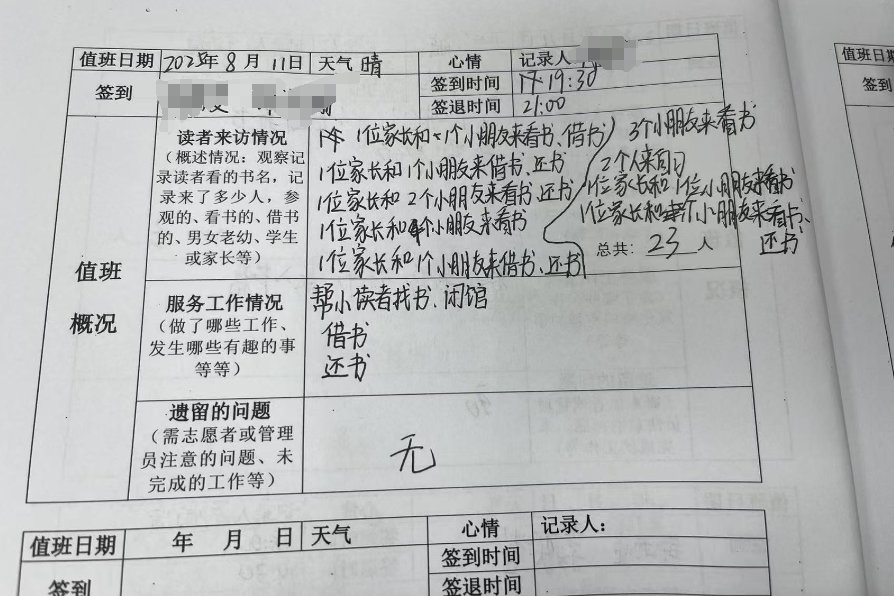 值班日期 2025年 8 月 11日 天气 晴 心情 记录人
签到 签到时间 19:30
签退时间 21:00
值班概况
读者来访情况
（概述情况：观察记
录读者看的书名，记
录来了多少人，参
观的、看书的、借书
的、男女老幼、学生
或家长等）
1位家长和1个小朋友来看书、借书
1位家长和1个小朋友来借书、还书
1位家长和2个小朋友来看书、还书
1位家长和个小朋友来看书
1位家长和1个小朋友来借书、还书
3个小朋友来看书
2个人来自习
1位家长和1位小朋友来看书
1位家长和个小朋友来看书、
还书
总共：23人
服务工作情况
（做了哪些工作、
发生哪些有趣的事
等等）
帮小读者找书、闭馆
借书
还书
遗留的问题
（需志愿者或管理
员注意的问题、未
完成的工作等）
无
值班日期 年 月 日 天气 心情 记录人：
签到 签到时间
签退时间
值班日期
签到